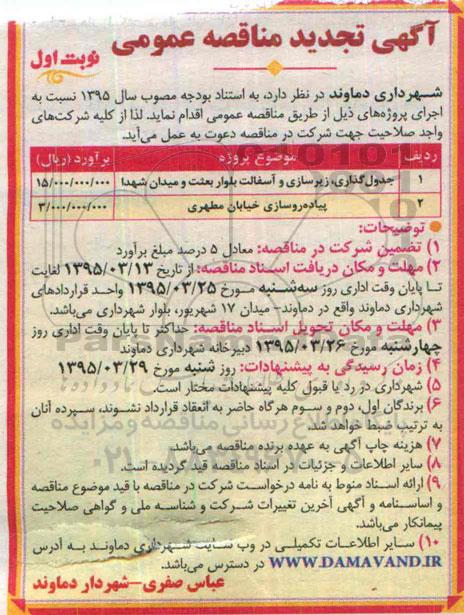 آگهی تجدید مناقصه عمومی
نوبت اول
شهرداری دماوند در نظر دارد، به استناد بودجه مصوب سال ۱۳۹۵ نسبت به
اجرای پروژه‌های ذیل از طریق مناقصه عمومی اقدام نماید. لذا از کلیه شرکت‌های
واجد صلاحیت جهت شرکت در مناقصه دعوت به عمل می‌آید.
ردیف موضوع پروژه برآورد (ریال)
۱ جدول‌گذاری، زیرسازی و آسفالت بلوار بعثت و میدان شهدا ۱۵/۰۰۰/۰۰۰/۰۰۰
۲ پیاده‌روسازی خیابان مطهری ۳/۰۰۰/۰۰۰/۰۰۰
توضیحات:
۱) تضمین شرکت در مناقصه: معادل ۵ درصد مبلغ برآورد
۲) مهلت و مکان دریافت اسناد مناقصه: از تاریخ ۱۳۹۵/۰۳/۱۳ لغایت
تا پایان وقت اداری روز سه‌شنبه مورخ ۱۳۹۵/۰۳/۲۵ واحد قراردادهای
شهرداری دماوند واقع در دماوند– میدان ۱۷ شهریور، بلوار شهرداری می‌باشد.
۳) مهلت و مکان تحویل اسناد مناقصه: حداکثر تا پایان وقت اداری روز
چهارشنبه مورخ ۱۳۹۵/۰۳/۲۶ دبیرخانه شهرداری دماوند
۴) زمان رسیدگی به پیشنهادات: روز شنبه مورخ ۱۳۹۵/۰۳/۲۹
۵) شهرداری در رد یا قبول کلیه پیشنهادات مختار است.
۶) برندگان اول، دوم و سوم هرگاه حاضر به انعقاد قرارداد نشوند، سپرده آنان
به ترتیب ضبط خواهد شد.
۷) هزینه چاپ آگهی به عهده برنده مناقصه می‌باشد.
۸) سایر اطلاعات و جزئیات در اسناد مناقصه قید گردیده است.
۹) ارائه اسناد منوط به نامه درخواست شرکت در مناقصه با قید موضوع مناقصه
و اساسنامه و آگهی آخرین تغییرات شرکت و شناسه ملی و گواهی صلاحیت
پیمانکار می‌باشد.
۱۰) سایر اطلاعات تکمیلی در وب سایت شهرداری دماوند به آدرس
WWW.DAMAVAND.IR در دسترس می‌باشد.
عباس صفری–شهردار دماوند